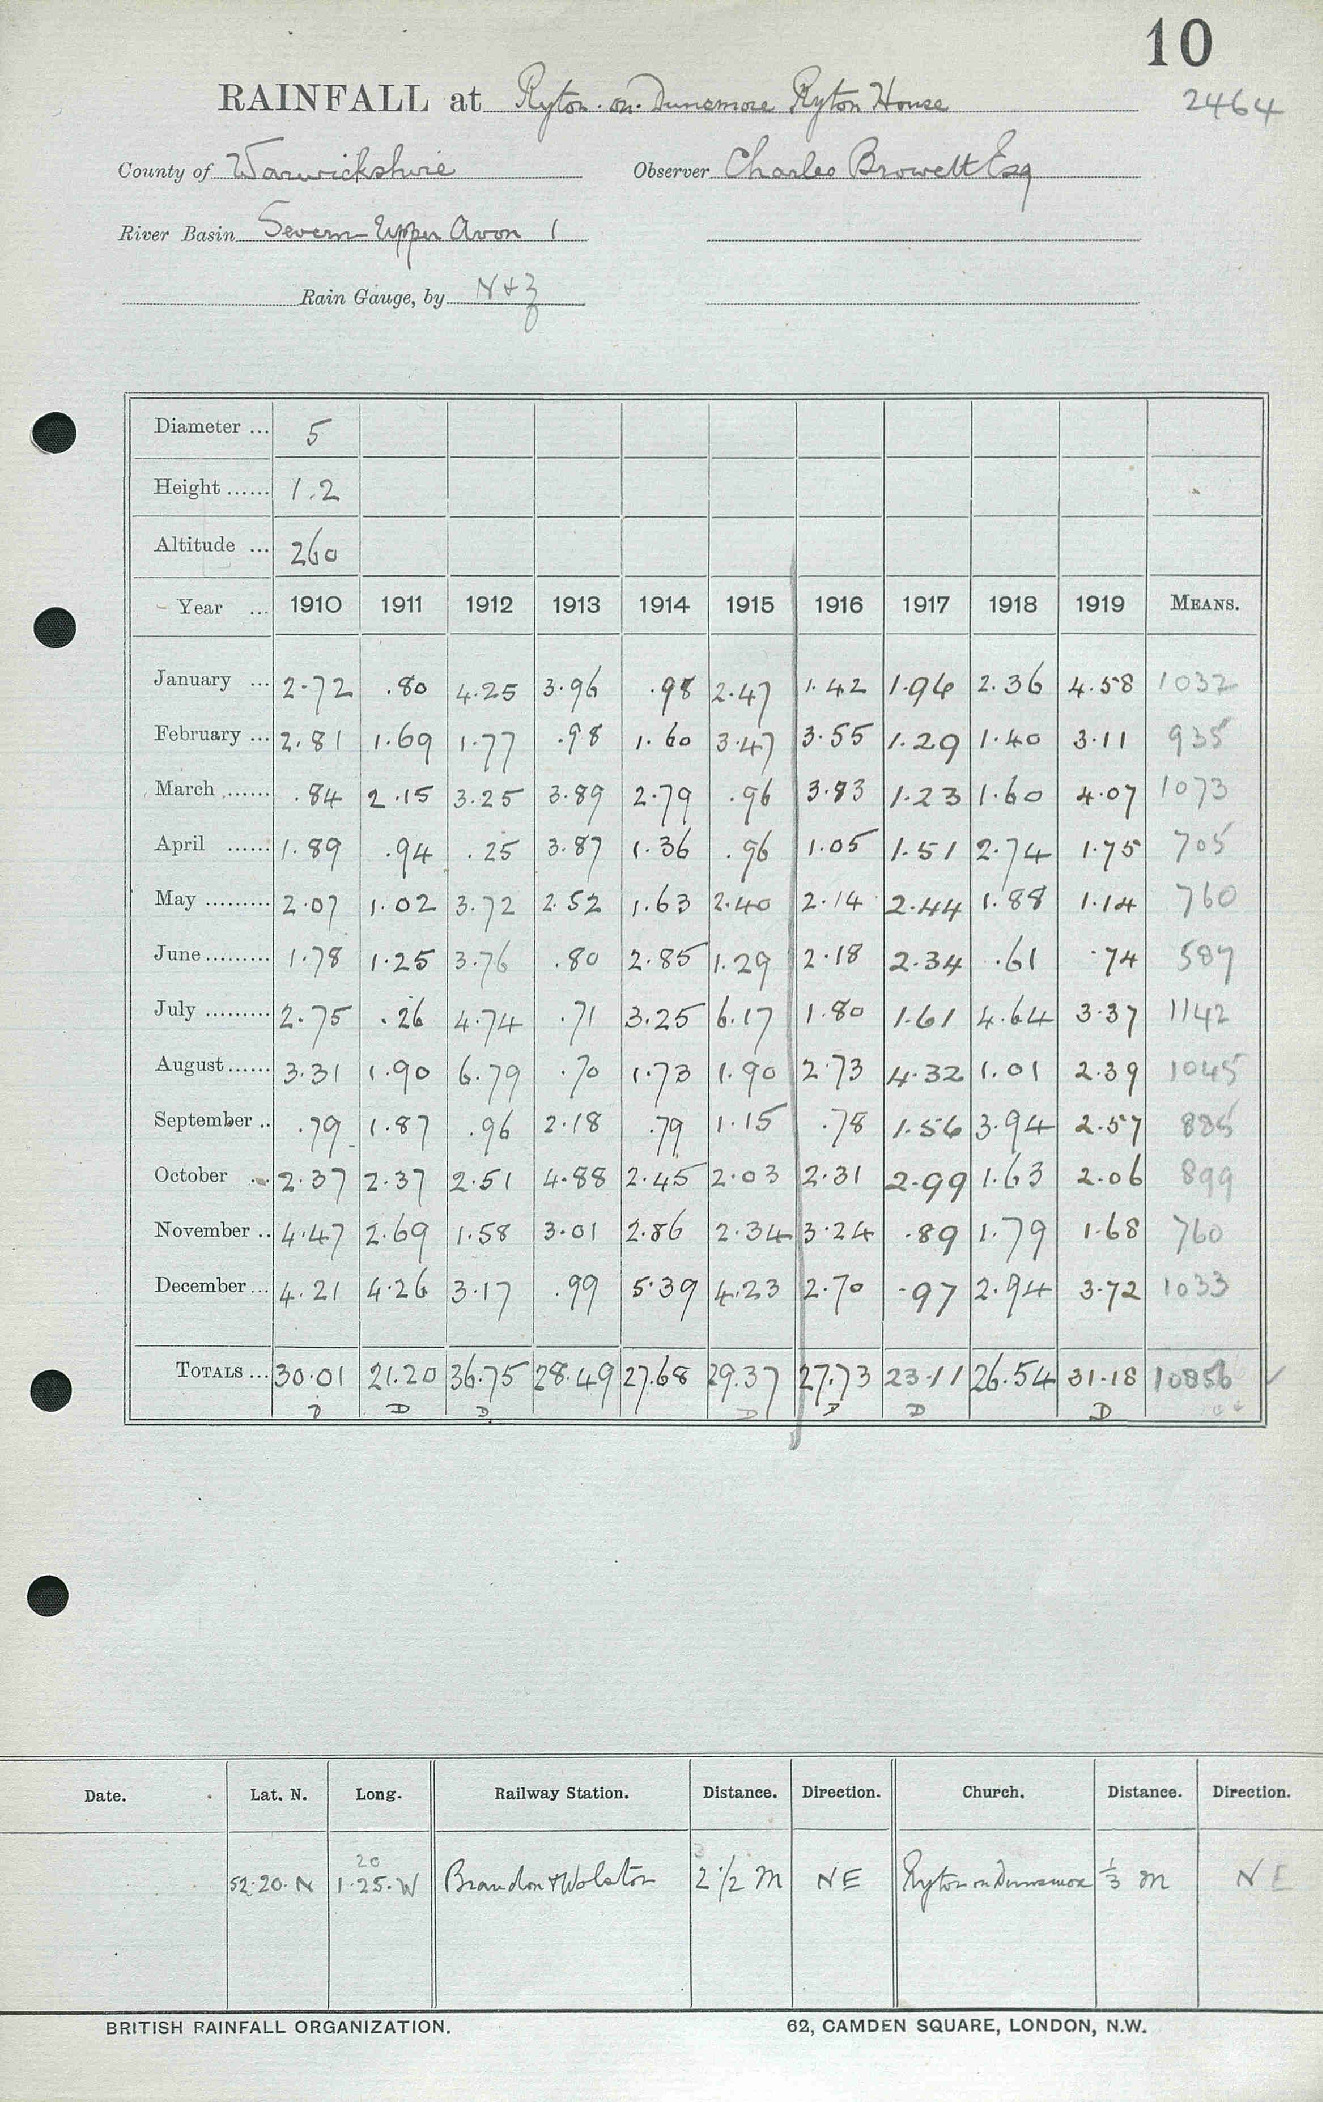 10
RAINFALL at Ryton-on-Dunsmore Ryton House 2464
County of Warwickshire Observer Charles Browett Esq
River Basin Severn-Upper Avon 1
Rain Gauge, by N & Z
Diameter ... 5
Height ...... 1.2
Altitude ... 260
Year ... 1910 1911 1912 1913 1914 1915 1916 1917 1918 1919 MEANS.
January ... 2.72 .80 4.25 3.96 .98 2.47 1.42 1.96 2.36 4.58 1032
February ... 2.81 1.69 1.77 .98 1.60 3.47 3.55 1.29 1.40 3.11 935
March ...... .84 2.15 3.25 3.89 2.79 .96 3.83 1.23 1.60 4.07 1073
April ...... 1.89 .94 .25 3.87 1.36 .96 1.05 1.51 2.74 1.75 705
May ......... 2.07 1.02 3.72 2.52 1.63 2.40 2.14 2.44 1.88 1.14 760
June ......... 1.78 1.25 3.76 .80 2.85 1.29 2.18 2.34 .61 .74 587
July ......... 2.75 .26 4.74 .71 3.25 6.17 1.80 1.61 4.64 3.37 1142
August ...... 3.31 1.90 6.79 .70 1.73 1.90 2.73 4.32 1.01 2.39 1045
September .. .79 1.87 .96 2.18 .79 1.15 .78 1.56 3.94 2.57 885
October .. 2.37 2.37 2.51 4.88 2.45 2.03 2.31 2.99 1.63 2.06 899
November .. 4.47 2.69 1.58 3.01 2.86 2.34 3.24 .89 1.79 1.68 760
December ... 4.21 4.26 3.17 .99 5.39 4.23 2.70 .97 2.94 3.72 1033
TOTALS ... 30.01 21.20 36.75 28.49 27.68 29.37 27.73 23.11 26.54 31.18 10856 ✓
D D D D D D D
Date. Lat. N. Long. Railway Station. Distance. Direction. Church. Distance. Direction.
20
52.20.N 1.25.W Brandon & Wolston 2 1/2 m NE Ryton on Dunsmore 1/3 m NE
BRITISH RAINFALL ORGANIZATION. 62, CAMDEN SQUARE, LONDON, N.W.